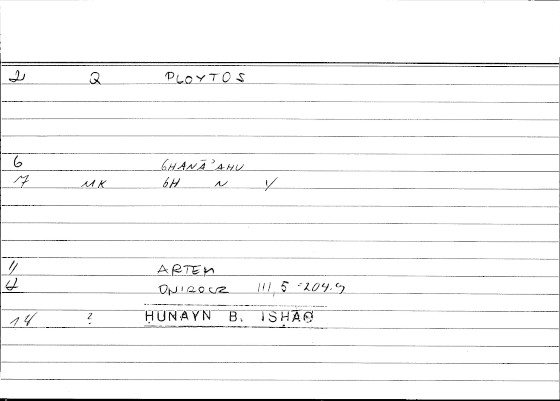 2 Q PLOYTOS
6 GHANĀʾAHU
7 MK GH N Y
11 ARTEM
12 ONIROCR III, 5 = 204.9
14 ? ḤUNAYN B. ISḤĀQ